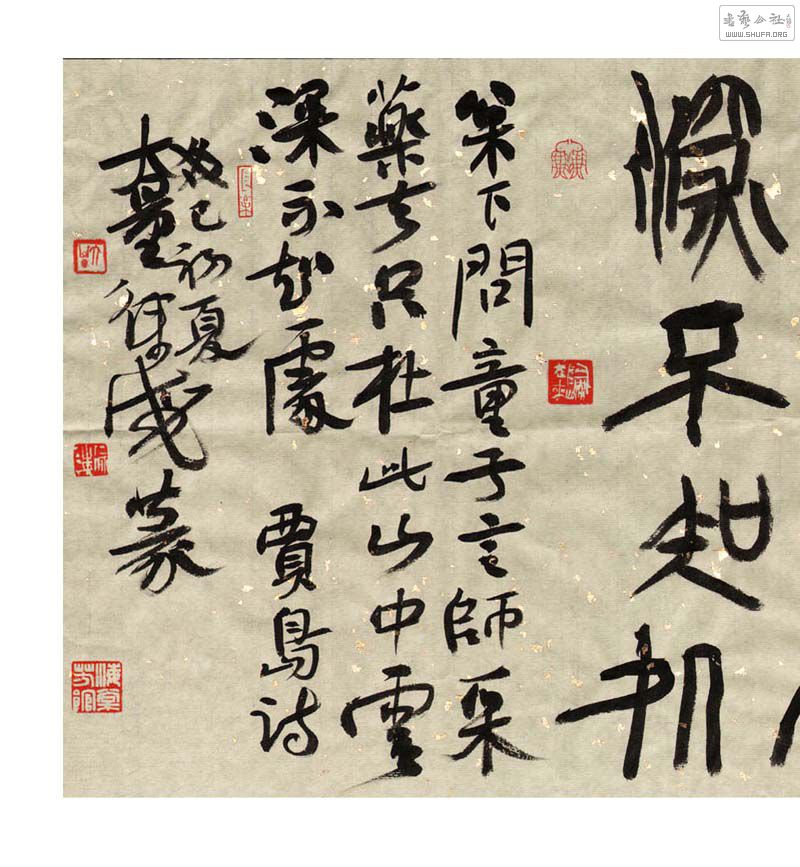 書藝公社
WWW.SHUFA.ORG
深不知処
枀下問童子言師采
藥去只在此山中雲
深不知處 賈島詩
癸巳初夏
篆